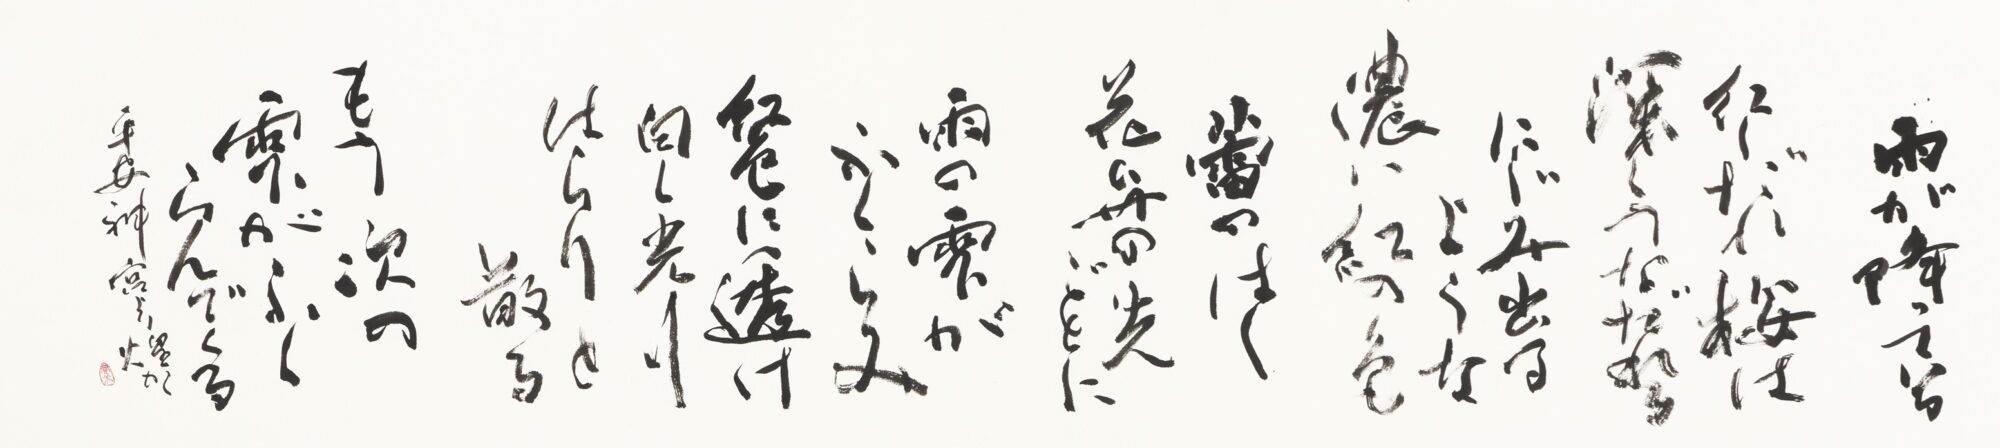 雨が降っている
紅しだれ桜は
深くうなだれる
にじみ出る
ような
濃い紅の色
蕾のはし
花弁の先
ごとに
雨の雫が
ふくらみ
紅色に透け
白く光り
はらりと
散る
もう次の
雫がふく
らんでくる
平安神宮